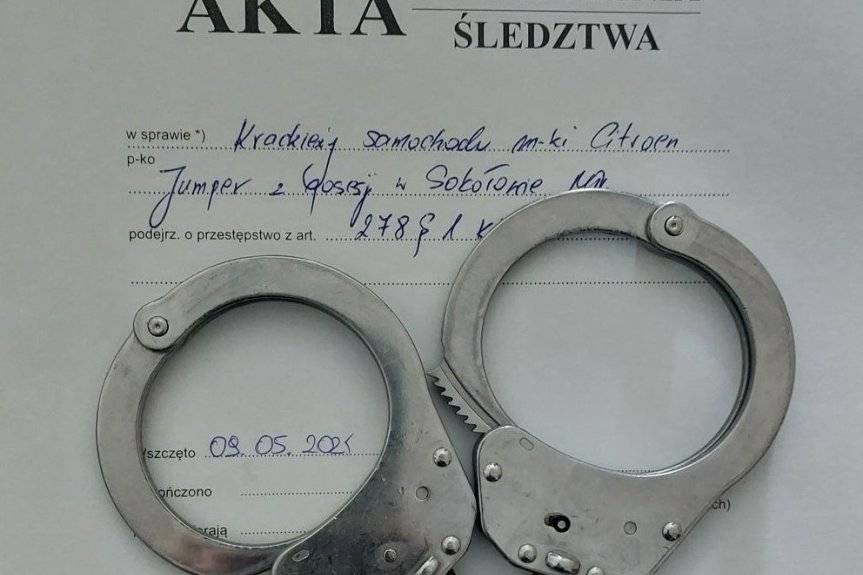 AKTA
ŚLEDZTWA
w sprawie *) Kradzieży samochodu m-ki Citroen
p-ko
Jumper z posesji w Sokołowie
podejrz. o przestępstwo z art. 278 § 1
szczęto 09.05.202
ończono